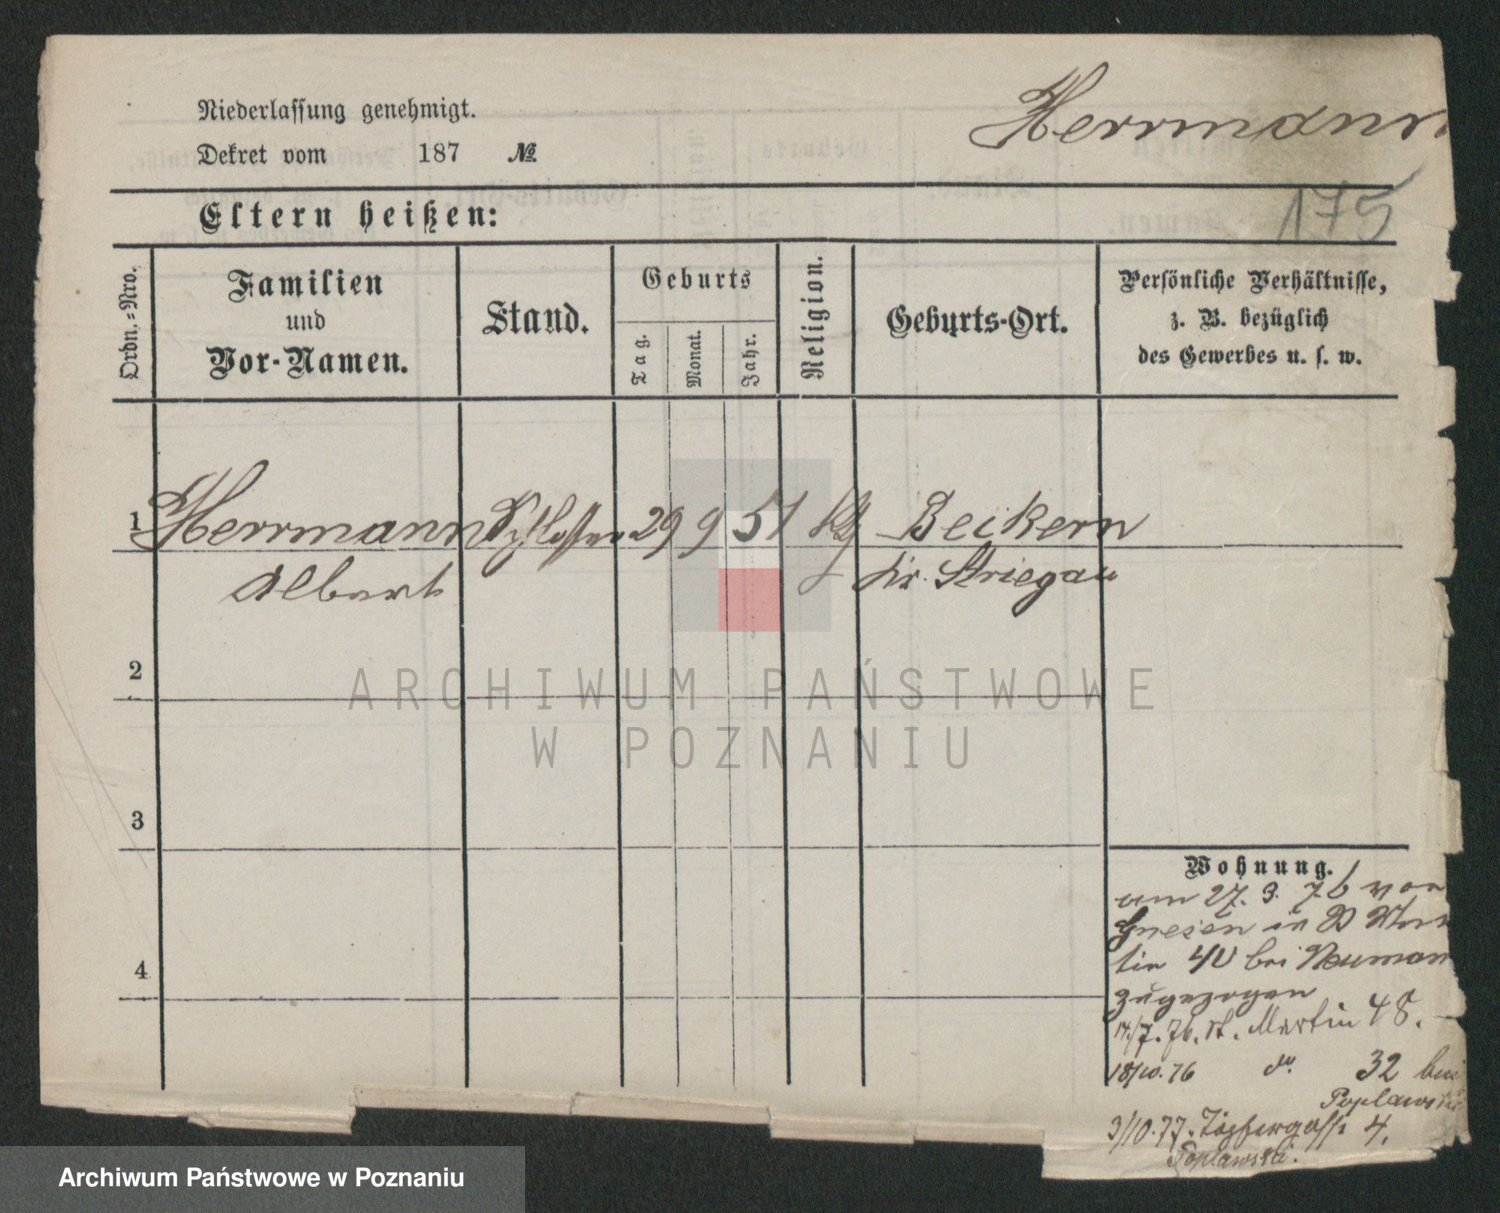 Herrmann
Niederlassung genehmigt.
Dekret vom 187 №
175
Eltern heißen:
Ordn.=Nro.
Familien
und
Vor-Namen.
Stand.
Geburts
Tag.
Monat.
Jahr.
Religion.
Geburts-Ort.
Persönliche Verhältnisse,
z. B. bezüglich
des Gewerbes u. s. w.
1 Herrmann Schlosser 29 9 51 Beikern
Albert Kr. Striegau
2
ARCHIWUM PAŃSTWOWE
W POZNANIU
3
4
Wohnung.
am 27. 3. 76 von
Gnesen in
tin 40 bei Neuman
zugezogen
17/7. 76. St. Martin 48.
18/10. 76 do. 32 bei
Poplawski
3/10. 77. Töpfergasse 4.
Poplawski.
Archiwum Państwowe w Poznaniu